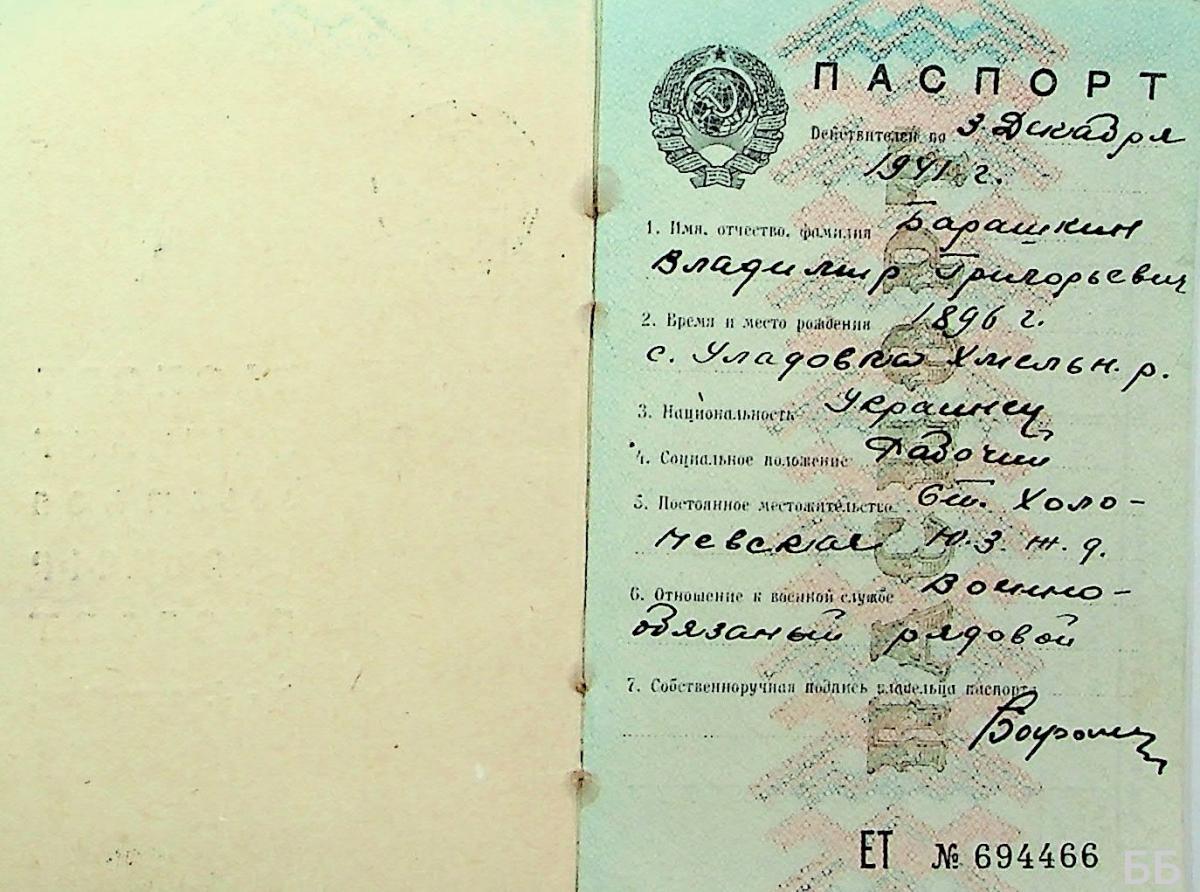 ПАСПОРТ
Действителен по 3 Декабря
1941 г.
1. Имя, отчество, фамилия Барашкин
Владимир Григорьевич
2. Время и место рождения 1896 г.
с. Уладовка Хмельн. р.
3. Национальность Украинец
4. Социальное положение Рабочий
5. Постоянное местожительство Ст. Холо-
невская Ю.З.ж.д.
6. Отношение к военной службе Военно-
обязаный рядовой
7. Собственноручная подпись владельца паспорта
ЕТ № 694466
ББ